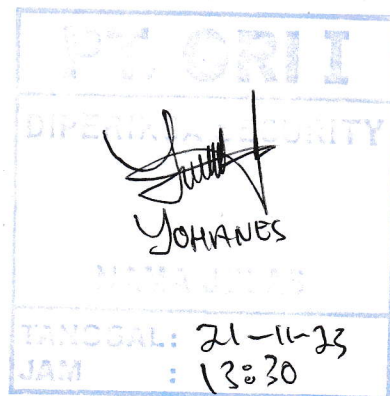 PT. ORI I
DIPERIKSA SECURITY
YOHANES
NAMA JELAS
TANGGAL: 21-11-23
JAM : 13:30